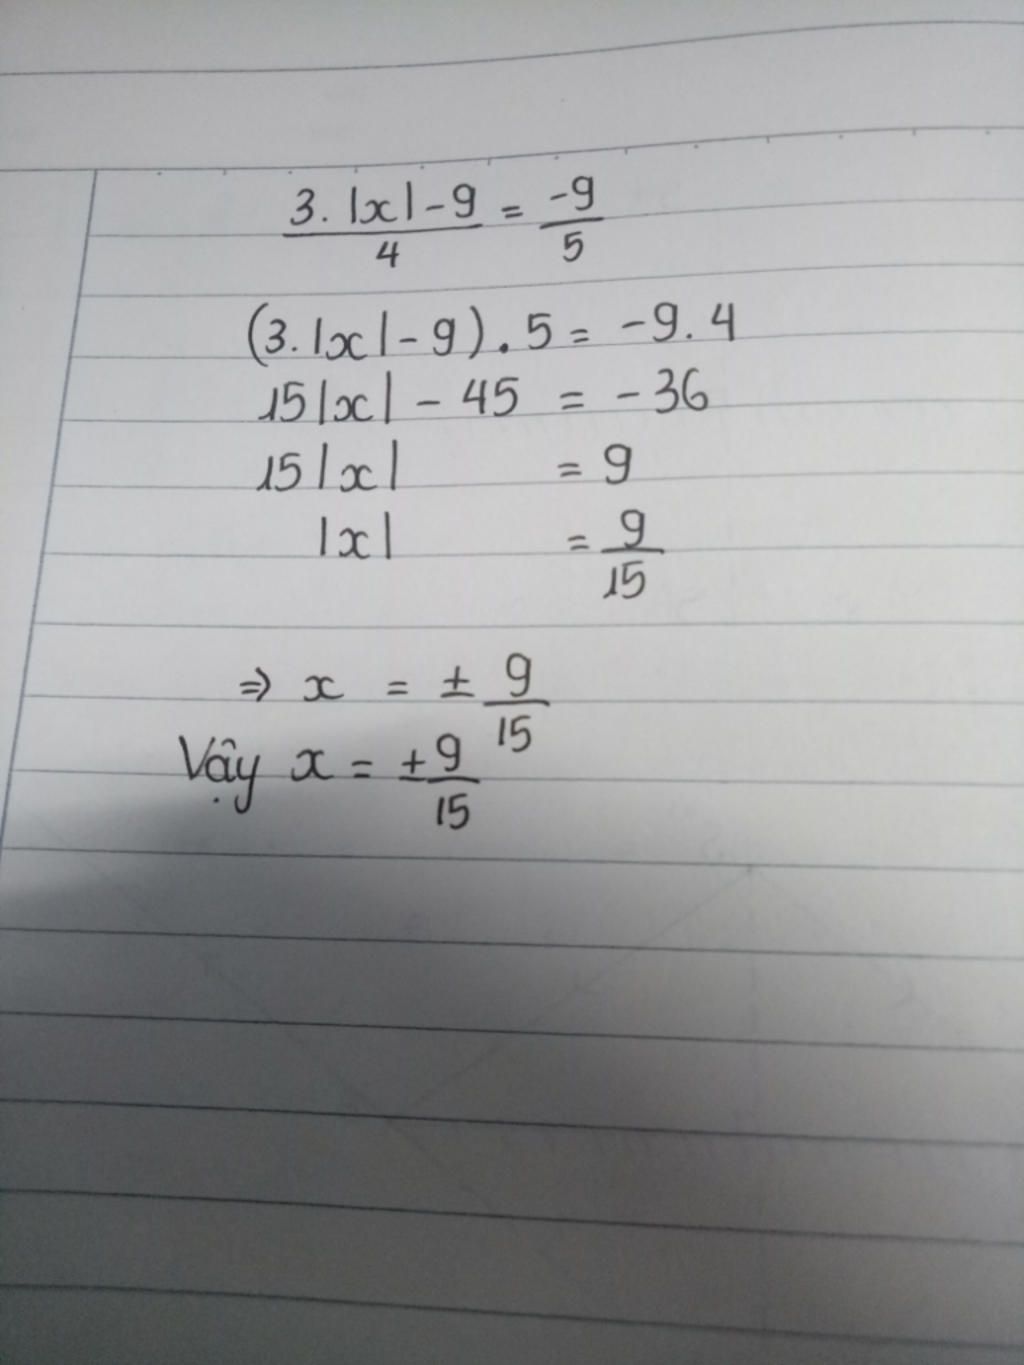 3.|x|-9 / 4 = -9 / 5
(3.|x|-9).5 = -9.4
15|x| - 45 = -36
15|x| = 9
|x| = 9/15
⇒ x = ± 9/15
Vậy x = ± 9/15